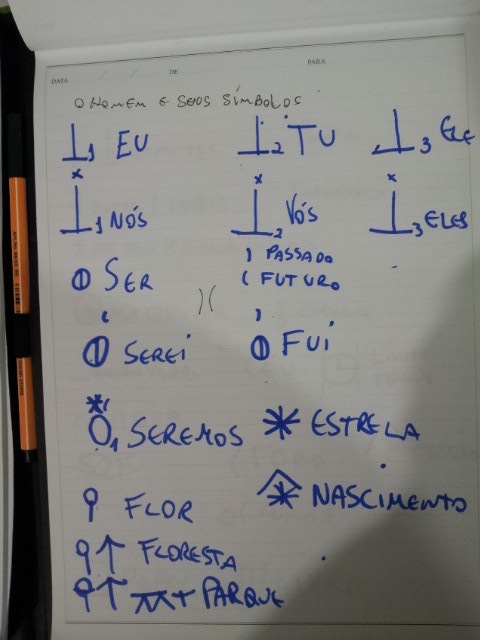 DATA / / DE PARA
O HOMEM E SEUS SÍMBOLOS
1 EU 2 TU 3 ELE
x x x
1 NÓS 2 VÓS 3 ELES
SER ) PASSADO
( FUTURO
SEREI FUI
1 SEREMOS * ESTRELA
FLOR * NASCIMENTO
FLORESTA
PARQUE